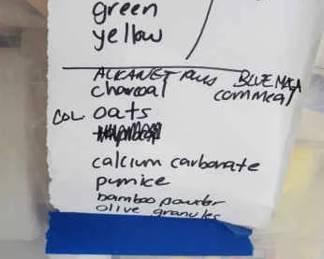 green
yellow
ALKANET BLUE MAZA
charcoal cornmeal
COL oats
calcium carbonate
pumice
bamboo powder
olive granules